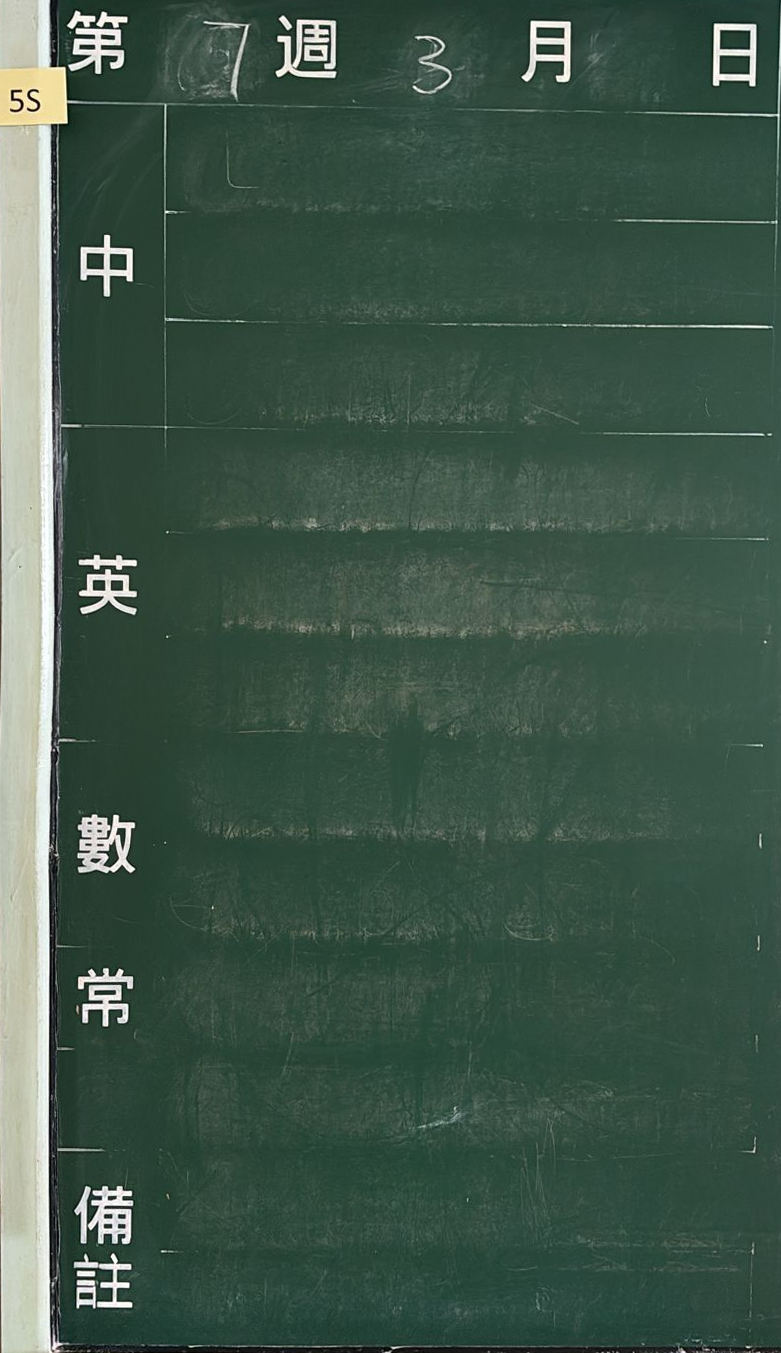 第 7 週 3 月 日
5S
中
英
數
常
備
註